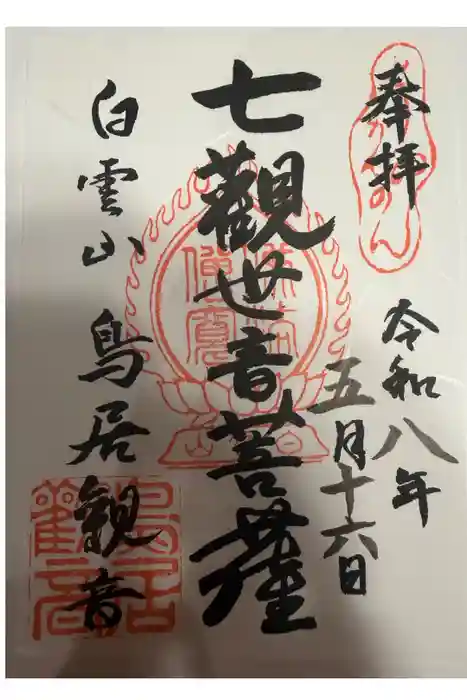 奉拝
令和八年
五月十六日
七觀世音菩薩
白雲山 鳥居観音
鳥居觀音